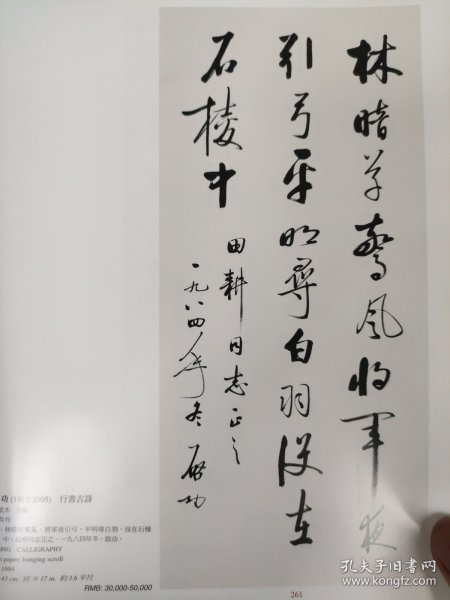 林暗草驚風將軍夜
引弓平明尋白羽沒在
石棱中
田耕同志正之
一九八四年冬 啟功
功 (1912-2005) 行書古詩
年作
草驚風，將軍夜引弓。平明尋白羽，沒在石棱
中。田耕同志正之，一九八四年冬，啟功。
ONG CALLIGRAPHY
paper; hanging scroll
1984
43 cm. 37 × 17 in. 約3.6平尺
RMB: 30,000-50,000
261
孔夫子旧书网
kongfz.com